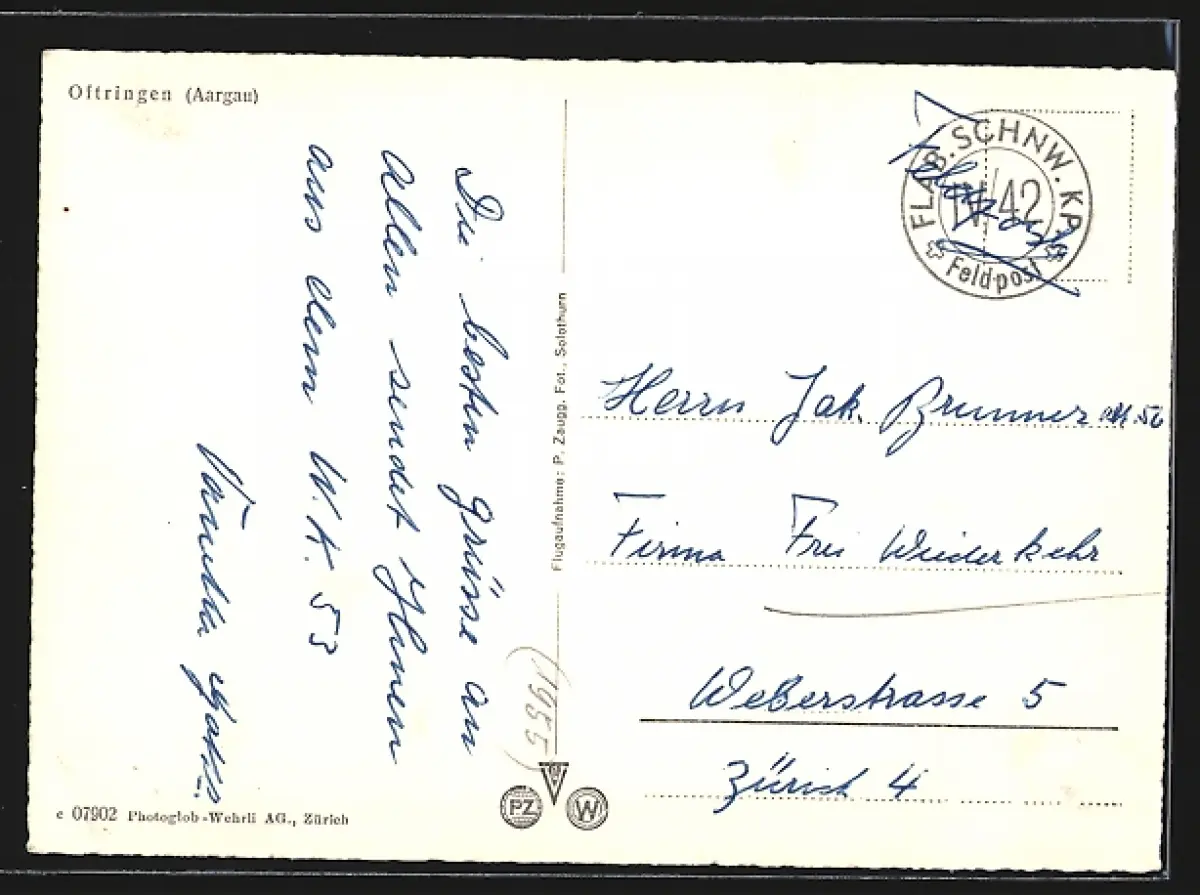 Oftringen (Aargau)
Die besten grüsse an
allen sendet Ihnen
aus dem W.K. 53
e 07902 Photoglob-Wehrli AG., Zürich
Flugaufnahme: P. Zaugg, Fot., Solothurn
(1955)
PZ
W
FLAB.SCHNW.KP.
IV/42
Feldpost
Feldpost
Herrn Jak. Brunner
Firma Frei Wiederkehr
Weberstrasse 5
Zürich 4